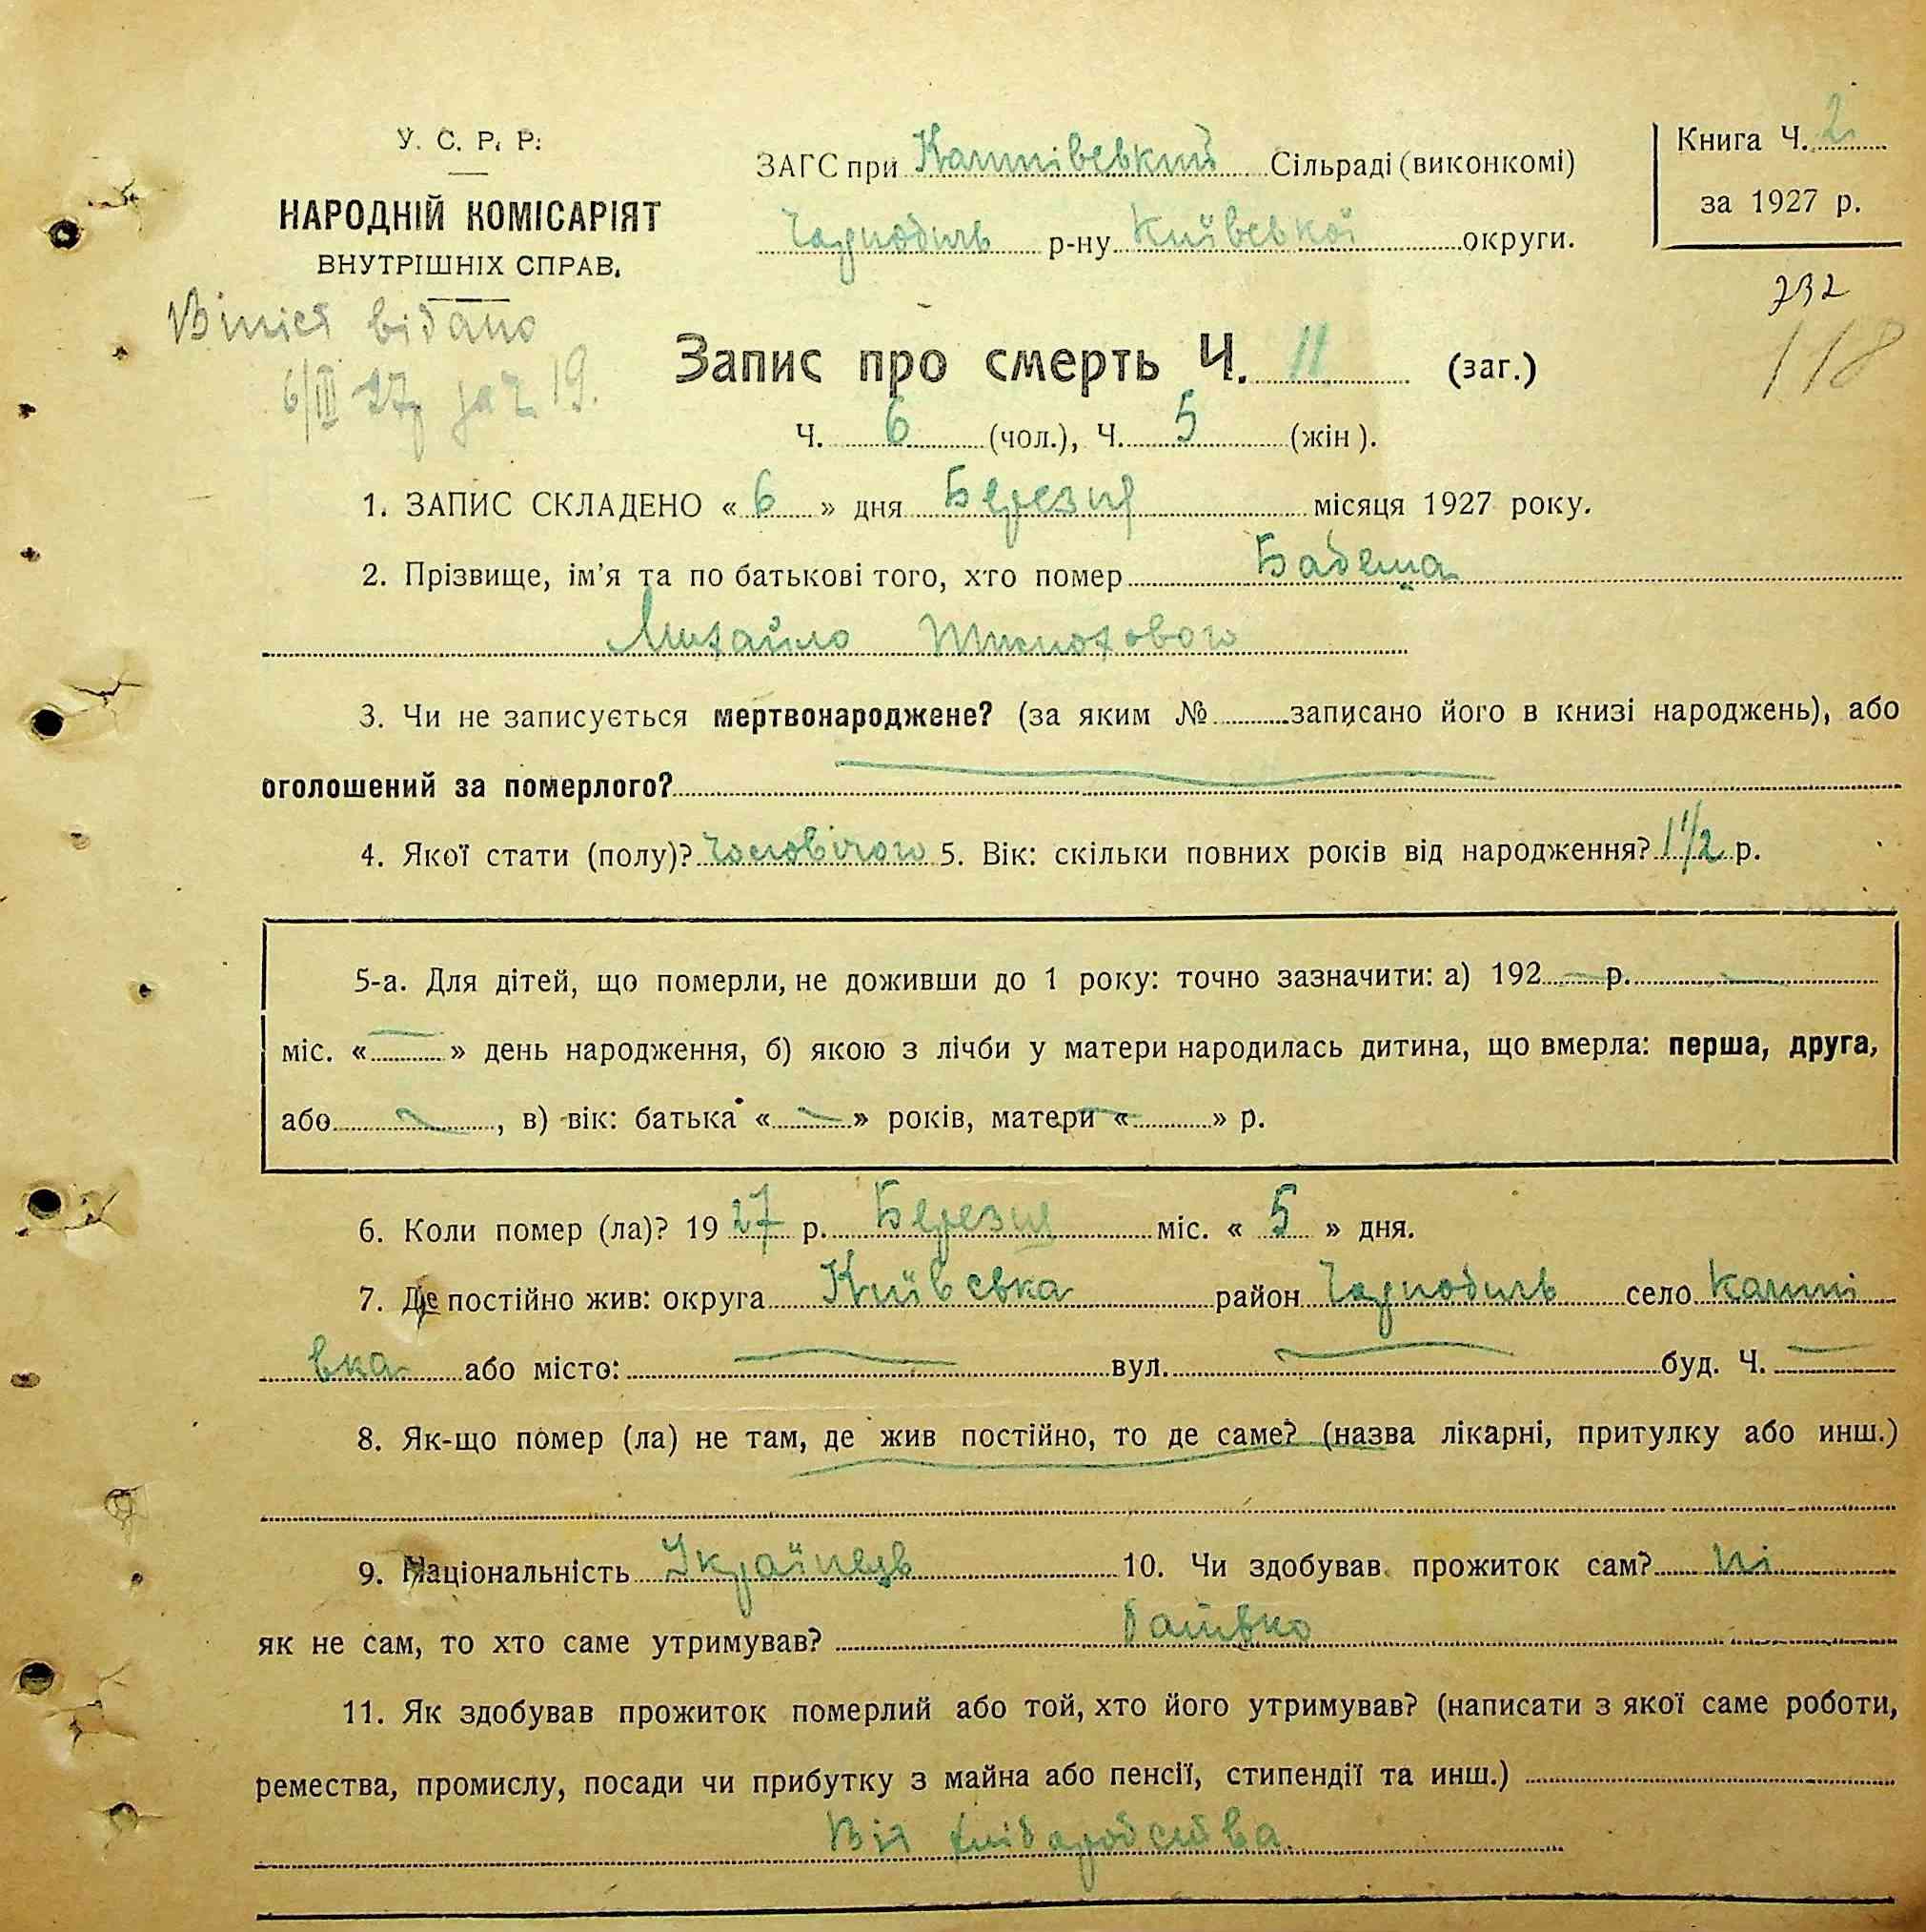 У. С. Р. Р.
НАРОДНІЙ КОМІСАРІЯТ
ВНУТРІШНІХ СПРАВ.
ЗАГС при Кашпівський Сільраді (виконкомі)
р-ну Київської округи.
Книга Ч. 2
за 1927 р.
732
118
відано
6/III 27 19.
Запис про смерть Ч. 11 (заг.)
Ч. 6 (чол.), Ч. 5 (жін).
1. ЗАПИС СКЛАДЕНО « 6 » дня Березня місяця 1927 року.
2. Прізвище, ім'я та по батькові того, хто помер
Михайло
3. Чи не записується мертвонароджене? (за яким № записано його в книзі народжень), або
оголошений за померлого?
4. Якої стати (полу)? 5. Вік: скільки повних років від народження? 1 1/2 р.
5-а. Для дітей, що померли, не доживши до 1 року: точно зазначити: а) 192 р.
міс. « » день народження, б) якою з лічби у матери народилась дитина, що вмерла: перша, друга,
або , в) вік: батька « » років, матери « » р.
6. Коли помер (ла)? 19 27 р. Березня міс. « 5 » дня.
7. Де постійно жив: округа Київська район село Кашпі
вка або місто: вул. буд. Ч.
8. Як-що помер (ла) не там, де жив постійно, то де саме? (назва лікарні, притулку або инш.)
9. Національність Українець 10. Чи здобував прожиток сам? ні
як не сам, то хто саме утримував? батько
11. Як здобував прожиток померлий або той, хто його утримував? (написати з якої саме роботи,
ремества, промислу, посади чи прибутку з майна або пенсії, стипендії та инш.)
Від хліборобства